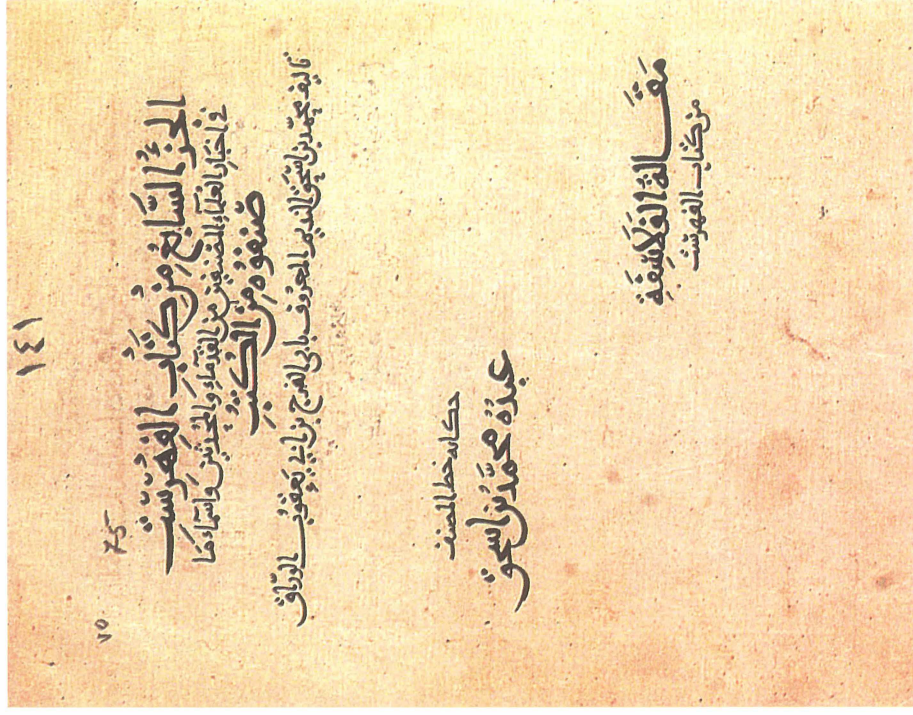 ١٤١
٧٥
75
الجزُء السَّابع مِنْ كتَابِ الفِهْرِسْت
في اخبار العلماءِ المصنفين من القدماءِ والمحُدَثين واسْمَاءِ مَا
صَنفوُهُ مِنَ الكتُبِ
تاليف محمد بن اسحق النديم المعروف بابي الفرج بن ابي يعقوب الوراق
حكاية خط المصنف
عبدُهُ محمَّد بن اسحق
مَقَالةُ الفَلاسِفَةِ
من كتاب الفهرست